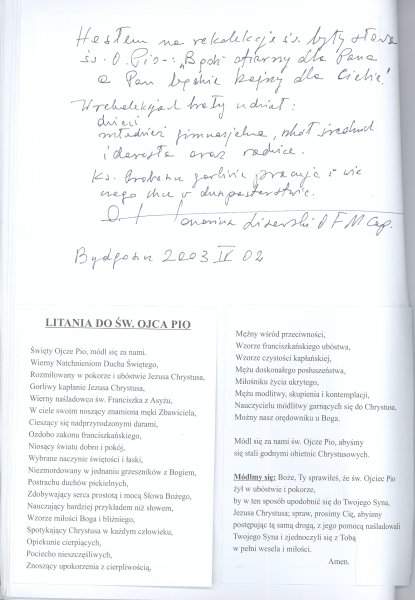 Hasłem na rekolekcje św. były słowa
św. O. Pio: "Bądź ofiarny dla Pana
a Pan będzie hojny dla Ciebie"
W rekolekcjach brały udział:
dzieci
młodzież gimnazjalna, szkół średnich
i dorosła oraz rodzice.
Ks. Proboszcz gorliwie pracuje i wie
czego chce w duszpasterstwie.
O. OFMCap.
Bydgoszcz 2003 IV 02
LITANIA DO ŚW. OJCA PIO
Święty Ojcze Pio, módl się za nami.
Wierny Natchnieniom Ducha Świętego,
Rozmiłowany w pokorze i ubóstwie Jezusa Chrystusa,
Gorliwy kapłanie Jezusa Chrystusa,
Wierny naśladowco św. Franciszka z Asyżu,
W ciele swoim noszący znamiona męki Zbawiciela,
Cieszący się nadprzyrodzonymi darami,
Ozdobo zakonu franciszkańskiego,
Niosący światu dobro i pokój,
Wybrane naczynie świętości i łaski,
Niezmordowany w jednaniu grzeszników z Bogiem,
Postrachu duchów piekielnych,
Zdobywający serca prostotą i mocą Słowa Bożego,
Nauczający bardziej przykładem niż słowem,
Wzorze miłości Boga i bliźniego,
Spotykający Chrystusa w każdym człowieku,
Opiekunie cierpiących,
Pociecho nieszczęśliwych,
Znoszący upokorzenia z cierpliwością,
Mężny wśród przeciwności,
Wzorze franciszkańskiego ubóstwa,
Wzorze czystości kapłańskiej,
Mężu doskonałego posłuszeństwa,
Miłośniku życia ukrytego,
Mężu modlitwy, skupienia i kontemplacji,
Nauczycielu modlitwy garnących się do Chrystusa,
Możny nasz orędowniku u Boga.
Módl się za nami św. Ojcze Pio, abyśmy
się stali godnymi obietnic Chrystusowych.
Módlmy się: Boże, Ty sprawiłeś, że św. Ojciec Pio
żył w ubóstwie i pokorze,
by w ten sposób upodobnić się do Twojego Syna,
Jezusa Chrystusa; spraw, prosimy Cię, abyśmy
postępując tą samą drogą, z jego pomocą naśladowali
Twojego Syna i zjednoczyli się z Tobą
w pełni wesela i miłości.
Amen.